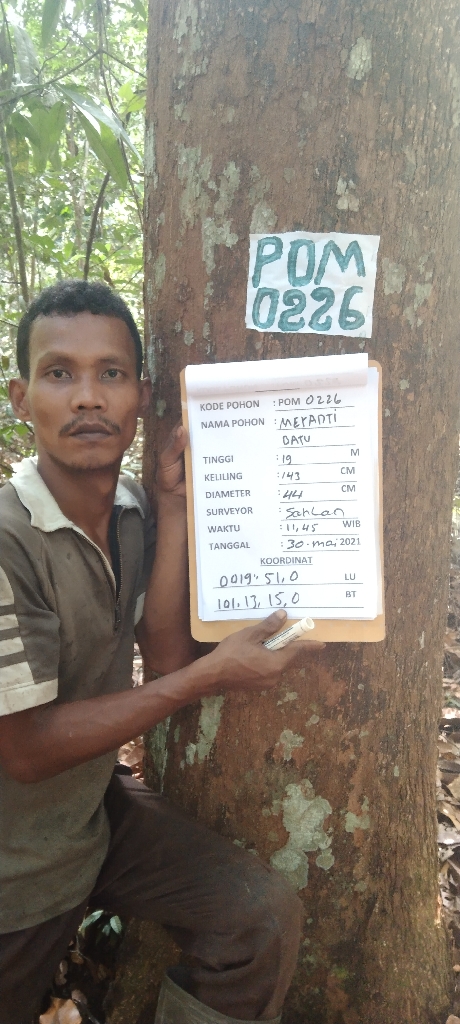 POM
0226
KODE POHON : POM 0226
NAMA POHON : MERANTI
BATU
TINGGI : 19 M
KELILING : 143 CM
DIAMETER : 44 CM
SURVEYOR : Sahlan
WAKTU : 11,45 WIB
TANGGAL : 30-mei 2021
KOORDINAT
0019". 51,0 LU
101, 13, 15,0 BT